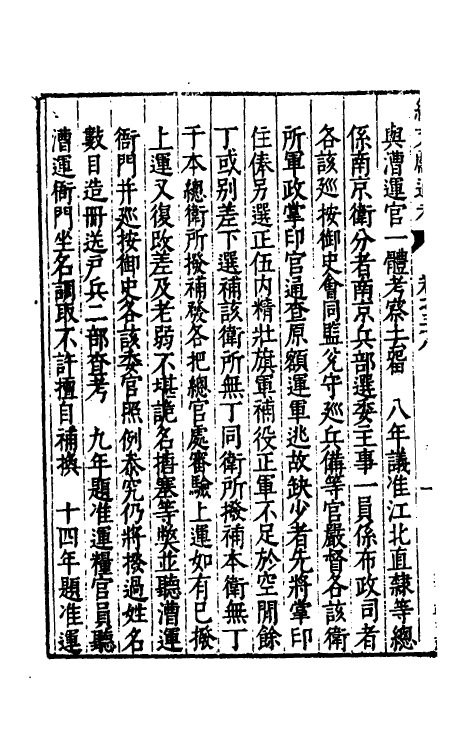 與漕運官一體考察去留　八年議准江北直隸等總
係南京衛分者南京兵部選委主事一員係布政司者
各該廵按御史會同監兊守廵兵備等官嚴督各該衛
所軍政掌印官通查原額運軍逃故缺少者先將掌印
住俸另選正伍内精壯旗軍補役正軍不足於空閒餘
丁或别差下選補該衛所無丁同衛所撥補本衛無丁
于本總衛所撥補發各把總官處審驗上運如有已撥
上運又復改差及老弱不堪詭名搪塞等弊並聽漕運
衙門并廵按御史各該委官照例叅究仍將撥過姓名
數目造冊送戸兵二部查考　九年題准運糧官員聽
漕運衙門坐名調取不許擅自補換　十四年題准運